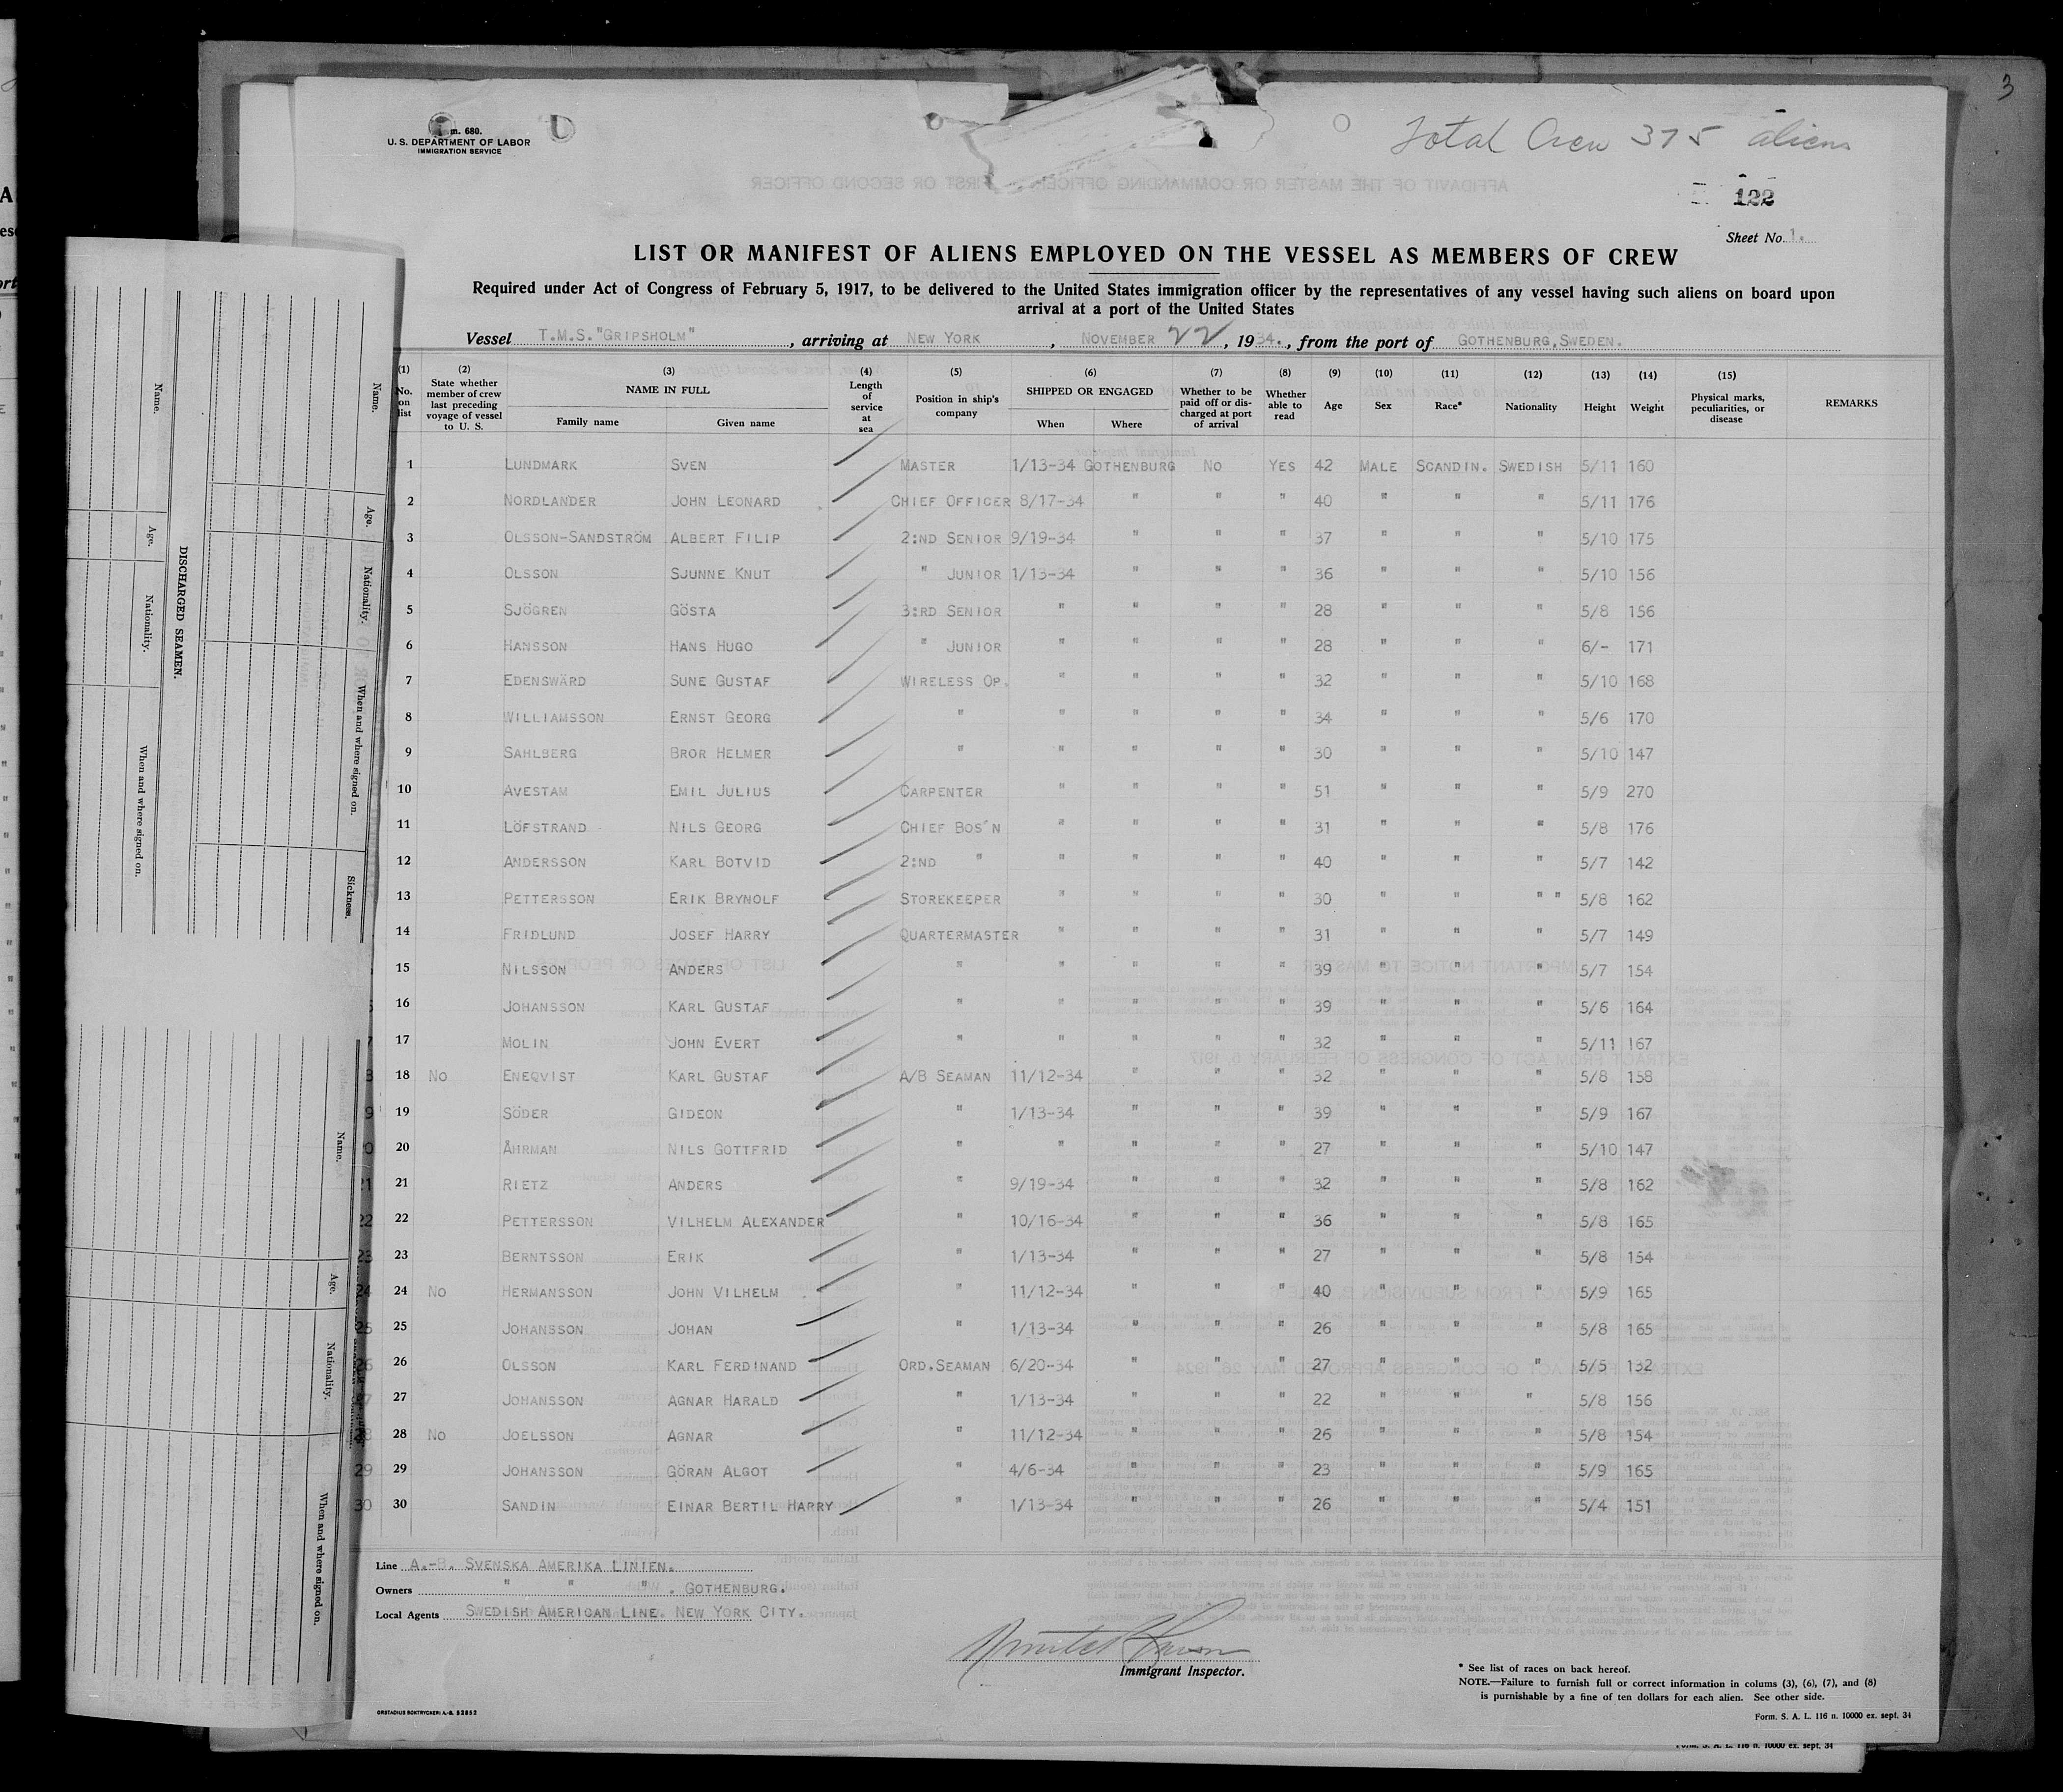 3
m. 680.
U. S. DEPARTMENT OF LABOR
IMMIGRATION SERVICE
Total Crew 375 aliens
122
Sheet No. 1.
LIST OR MANIFEST OF ALIENS EMPLOYED ON THE VESSEL AS MEMBERS OF CREW
Required under Act of Congress of February 5, 1917, to be delivered to the United States immigration officer by the representatives of any vessel having such aliens on board upon
arrival at a port of the United States
Vessel T.M.S."GRIPSHOLM", arriving at NEW YORK, NOVEMBER 22, 1934., from the port of GOTHENBURG, SWEDEN.
(1) No. on list (2) State whether member of crew last preceding voyage of vessel to U. S. (3) NAME IN FULL Family name Given name (4) Length of service at sea (5) Position in ship's company (6) SHIPPED OR ENGAGED When Where (7) Whether to be paid off or discharged at port of arrival (8) Whether able to read (9) Age (10) Sex (11) Race* (12) Nationality (13) Height (14) Weight (15) Physical marks, peculiarities, or disease REMARKS
1 LUNDMARK SVEN MASTER 1/13-34 GOTHENBURG NO YES 42 MALE SCANDIN. SWEDISH 5/11 160
2 NORDLANDER JOHN LEONARD CHIEF OFFICER 8/17-34 " " " 40 " " " 5/11 176
3 OLSSON-SANDSTRÖM ALBERT FILIP 2:ND SENIOR 9/19-34 " " " 37 " " " 5/10 175
4 OLSSON SJUNNE KNUT " JUNIOR 1/13-34 " " " 36 " " " 5/10 156
5 SJÖGREN GÖSTA 3:RD SENIOR " " " " 28 " " " 5/8 156
6 HANSSON HANS HUGO " JUNIOR " " " " 28 " " " 6/- 171
7 EDENSWÄRD SUNE GUSTAF WIRELESS OP. " " " " 32 " " " 5/10 168
8 WILLIAMSSON ERNST GEORG " " " " " 34 " " " 5/6 170
9 SAHLBERG BROR HELMER " " " " " 30 " " " 5/10 147
10 AVESTAM EMIL JULIUS CARPENTER " " " " 51 " " " 5/9 270
11 LÖFSTRAND NILS GEORG CHIEF BOS'N " " " " 31 " " " 5/8 176
12 ANDERSSON KARL BOTVID 2:ND " " " " " 40 " " " 5/7 142
13 PETTERSSON ERIK BRYNOLF STOREKEEPER " " " " 30 " " " " 5/8 162
14 FRIDLUND JOSEF HARRY QUARTERMASTER " " " " 31 " " " 5/7 149
15 NILSSON ANDERS " " " " " 39 " " " 5/7 154
16 JOHANSSON KARL GUSTAF " " " " " 39 " " " 5/6 164
17 MOLIN JOHN EVERT " " " " " 32 " " " 5/11 167
18 NO ENEQVIST KARL GUSTAF A/B SEAMAN 11/12-34 " " " 32 " " " 5/8 158
19 SÖDER GIDEON " 1/13-34 " " " 39 " " " 5/9 167
20 ÅHRMAN NILS GOTTFRID " " " " " 27 " " " 5/10 147
21 RIETZ ANDERS " 9/19-34 " " " 32 " " " 5/8 162
22 PETTERSSON VILHELM ALEXANDER " 10/16-34 " " " 36 " " " 5/8 165
23 BERNTSSON ERIK " 1/13-34 " " " 27 " " " 5/8 154
24 NO HERMANSSON JOHN VILHELM " 11/12-34 " " " 40 " " " 5/9 165
25 JOHANSSON JOHAN " 1/13-34 " " " 26 " " " 5/8 165
26 OLSSON KARL FERDINAND ORD.SEAMAN 6/20-34 " " " 27 " " " 5/5 132
27 JOHANSSON AGNAR HARALD " 1/13-34 " " " 22 " " " 5/8 156
28 NO JOELSSON AGNAR " 11/12-34 " " " 26 " " " 5/8 154
29 JOHANSSON GÖRAN ALGOT " 4/6-34 " " " 23 " " " 5/9 165
30 SANDIN EINAR BERTIL HARRY " 1/13-34 " " " 26 " " " 5/4 151
Line A.-B. SVENSKA AMERIKA LINIEN.
Owners " " " . GOTHENBURG.
Local Agents SWEDISH AMERICAN LINE. NEW YORK CITY.
Immigrant Inspector.
* See list of races on back hereof.
NOTE.—Failure to furnish full or correct information in colums (3), (6), (7), and (8)
is punishable by a fine of ten dollars for each alien. See other side.
ORSTADIUS BOKTRYCKERI A.-B. 52852
Form. S. A. L. 116 n. 10000 ex. sept. 34
Form. S. A. L. 116 n. 10000 ex. sept. 34
DISCHARGED SEAMEN.
Name. Age. Nationality. When and where signed on.
Name. Age. Nationality. When and where signed on. Sickness.
Name. Age. Nationality. When and where signed on.